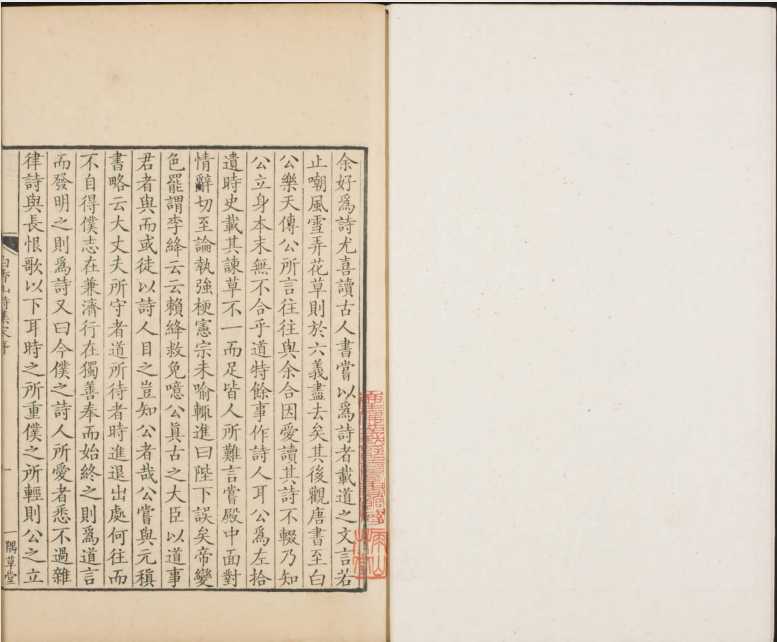 余好爲詩尤喜讀古人書嘗以爲詩者載道之文言若
止嘲風雪弄花草則於六義盡去矣其後觀唐書至白
公樂天傳公所言往往與余合因愛讀其詩不輟乃知
公立身本末無不合乎道特餘事作詩人耳公爲左拾
遺時史載其諫草不一而足皆人所難言嘗殿中面對
情辭切至論執強梗憲宗未喻輒進曰陛下誤矣帝變
色罷謂李絳云云賴絳救免噫公眞古之大臣以道事
君者與而或徒以詩人目之豈知公者哉公嘗與元稹
書略云大丈夫所守者道所待者時進退出處何往而
不自得僕志在兼濟行在獨善奉而始終之則爲道言
而發明之則爲詩又曰今僕之詩人所愛者悉不過雜
律詩與長恨歌以下耳時之所重僕之所輕則公之立
白香山詩集 一 一隅草堂